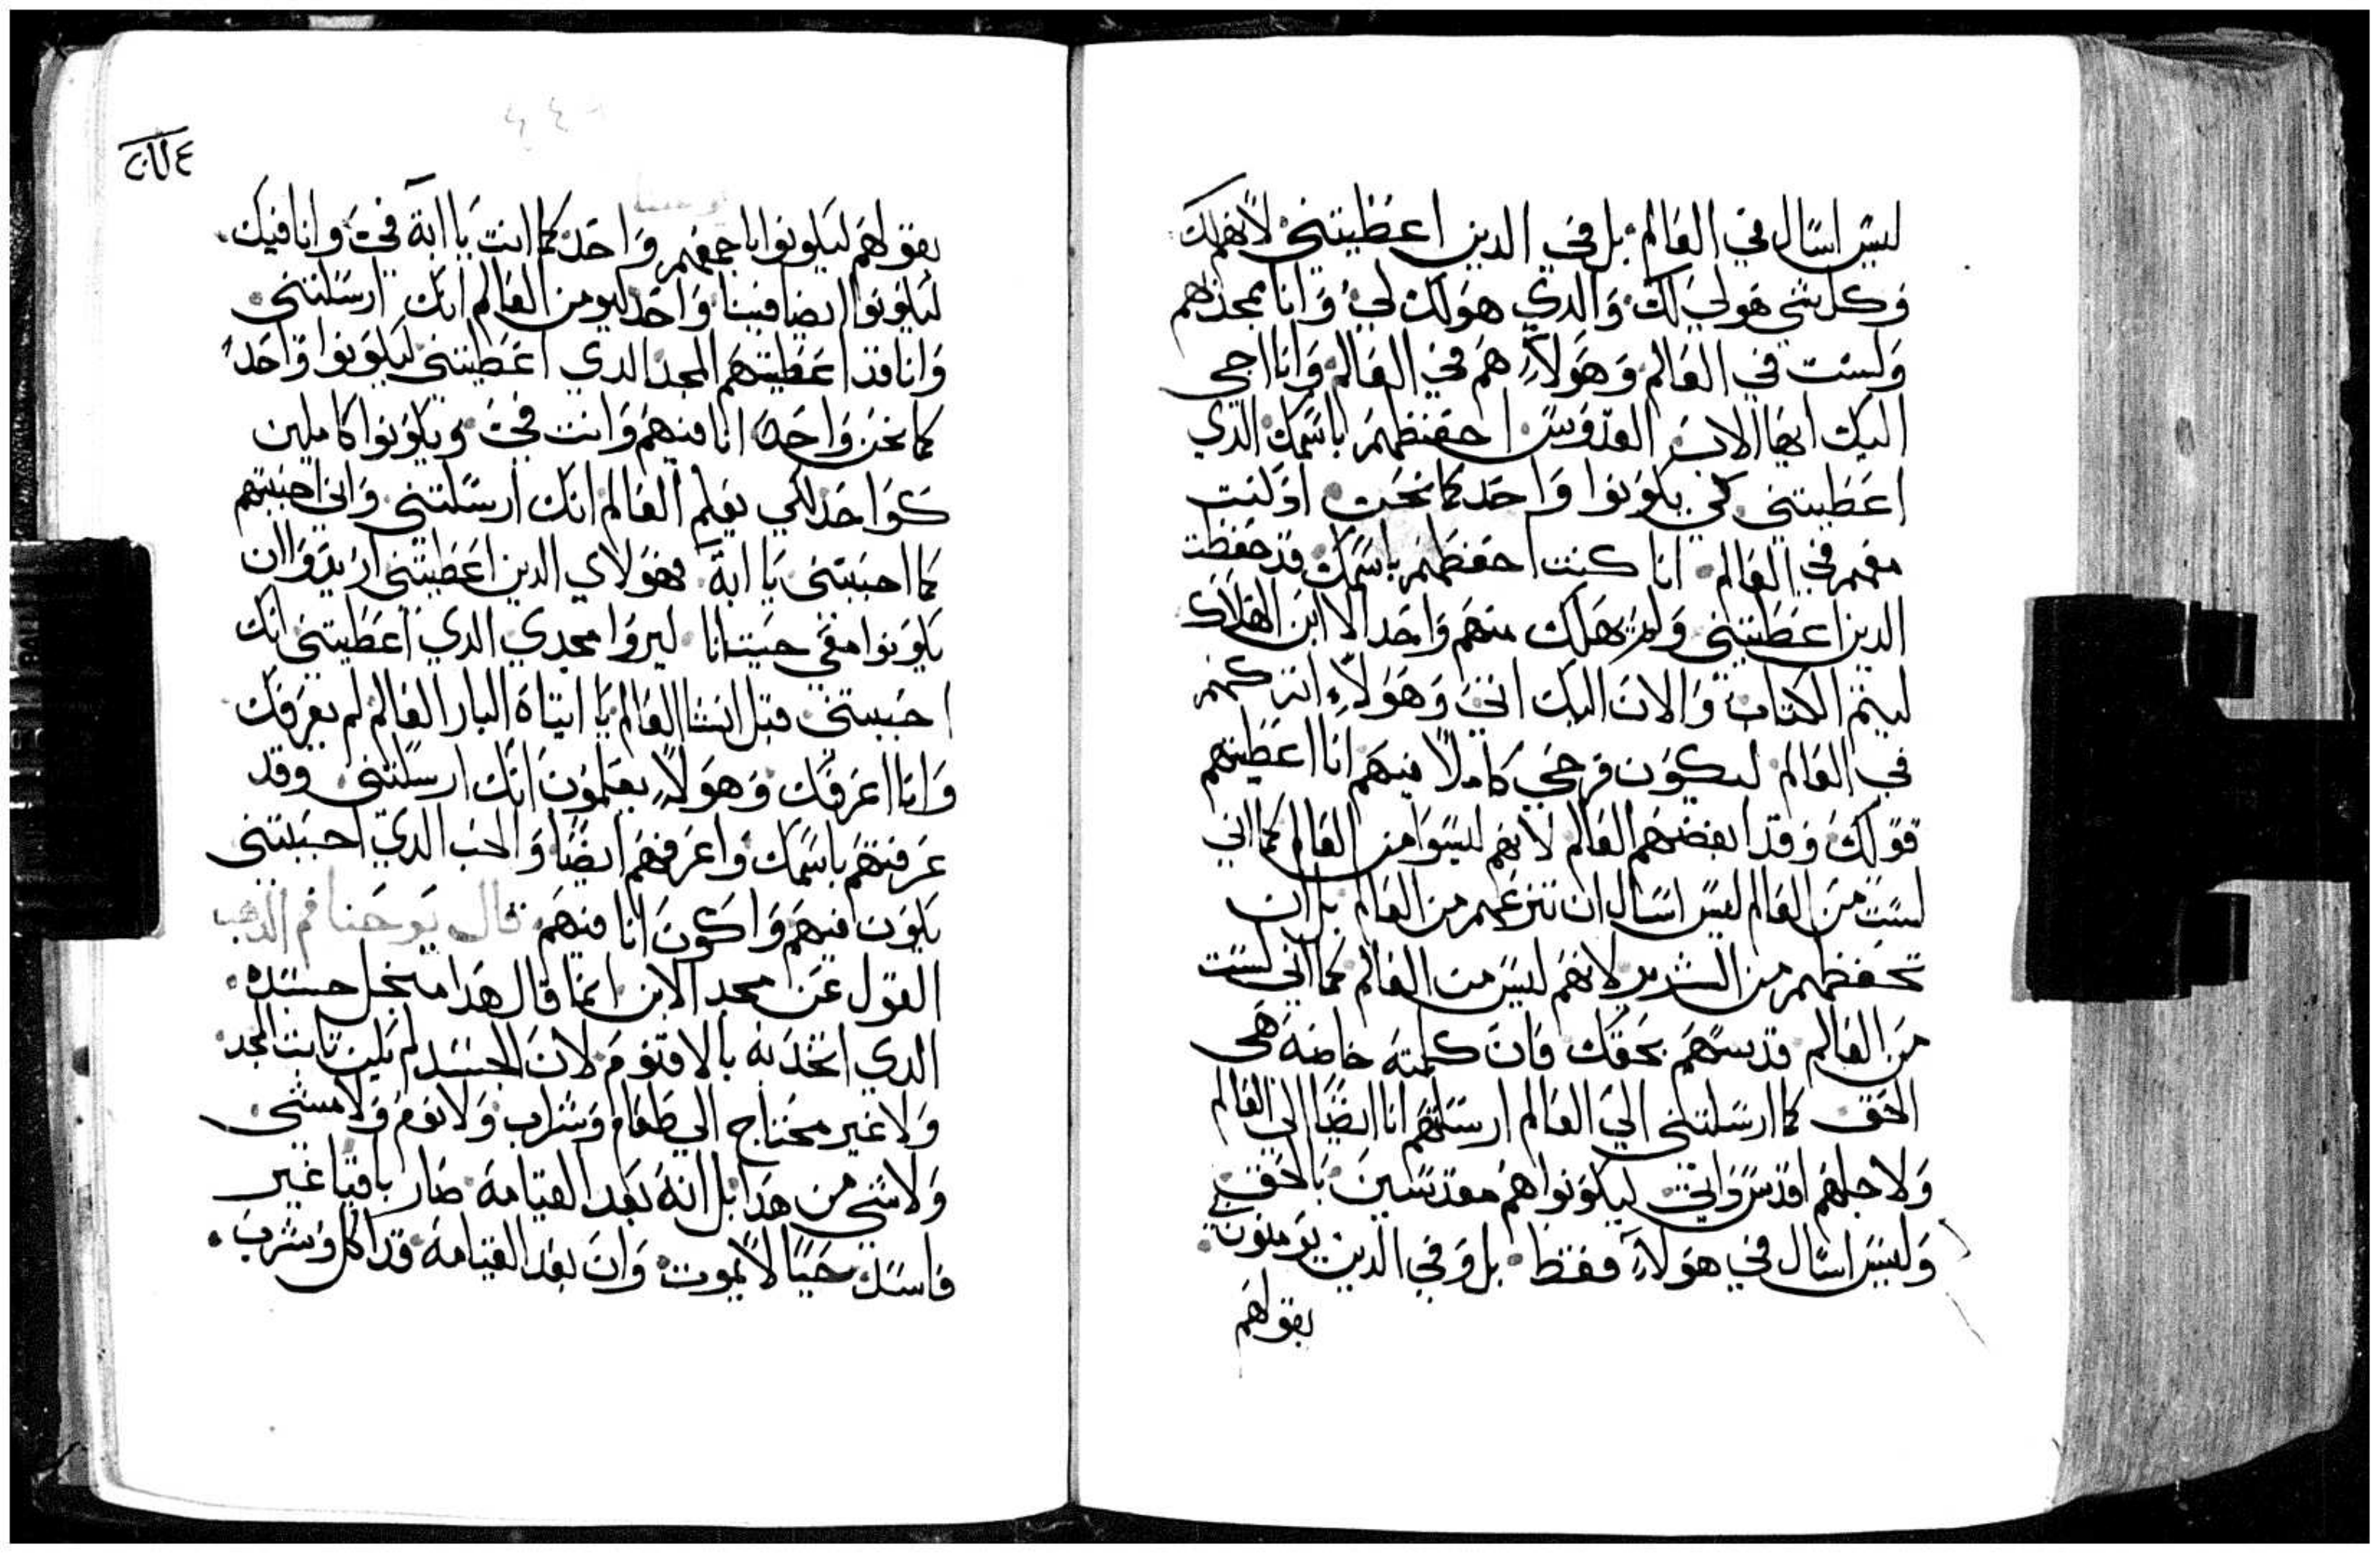 ليس اسال في العالم بل في الدين اعطيتني لانهم لك
وكل شي هو لي لك والدي هو لك لي وانا بمجدهم
ولست في العالم وهولاء هم في العالم وانا اجي
اليك ايها الاب القدوس احفظهم باسمك الدي
اعطيتني كي يكونوا واحد كما نحن اد كنت
معهم في العالم انا كنت احفظهم باسمك قد حفظت
الدين اعطيتني ولم يهلك منهم واحد الا ابن الهلاك
ليتم الكتاب والان اليك اتي وهولاء اتركهم
في العالم ليكون فرحي كاملا فيهم انا اعطيتهم
قولك وقد ابغضهم العالم لانهم ليسوا من العالم كما اني
لست من العالم ليس اسال ان تنزعهم من العالم بل ان
تحفظهم من الشرير لانهم ليس من العالم كما اني لست
من العالم قدسهم بحقك فان كلمته خاصة هي
الحق كما ارسلتني الي العالم ارسلتهم انا ايضا الي العالم
ولاجلهم اقدس داتي ليكونوا هم مقدسين بالحق
وليس اسال في هولاء فقط بل وفي الدين يومنون
بقولهم
بقولهم ليكونوا باجمعهم واحد كما انت يا ابة في وانا فيك
ليكونوا ايضا فينا واحد ليومن العالم انك ارسلتني
وانا قد اعطيتهم المجد الدي اعطيتني ليكونوا واحد
كما نحن واحد انا فيهم وانت في ويكونوا كاملين
كواحد لكي يعلم العالم انك ارسلتني واني احببتهم
كما احببتني يا ابة فهولاي الدين اعطيتني اريد وان
يكونوا معي حيت انا ليروا مجدي الدي اعطيتني انك
احببتني قبل انشا العالم يا ابتاه البار العالم لم يعرفك
وانا اعرفك وهولاء يعلمون انك ارسلتني وقد
عرفتهم باسمك واعرفهم ايضا والحب الدي احببتني
يكون فيهم واكون انا فيهم قال يوحنا فم الدهب
القول عن مجد الابن انما قال هدا من اجل جسده
الدي اتحد به بالاقنوم لان الجسد لم يكن تابت المجد
ولا غير محتاج الي طعام وشراب ولا نوم ولا مشي
ولا شي من هدا بل انه بعد القيامة صار باقيا غير
فاسد حيا لا يموت وان بعد القيامة قد اكل وشرب